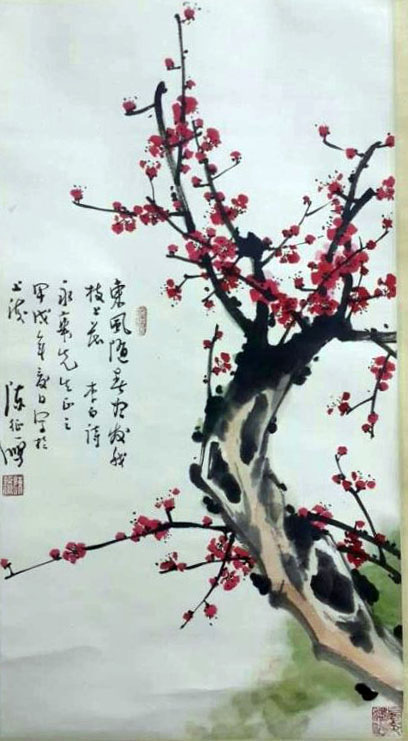 東風隨春歸發我
枝上花 李白詩
永先生正之
甲戌年夏日写於
上海 陈征